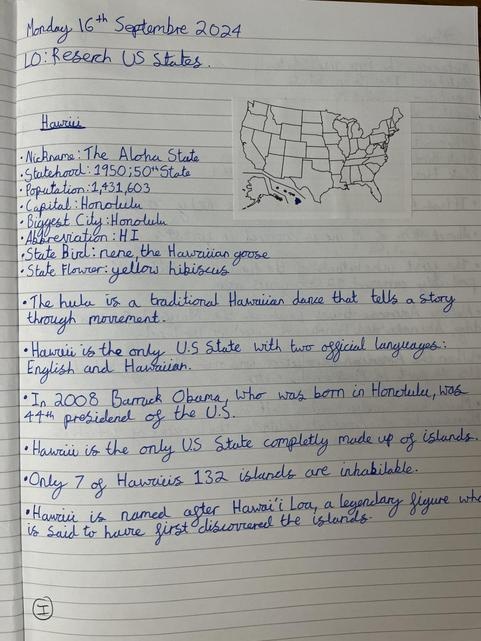 Monday 16th Septembre 2024
LO: Reserch US States.
Hawiii
• Nickname: The Aloha State
• Statehood: 1950; 50th State
• Poputation: 1,431,603
• Capital: Honolulu
• Biggest City: Honolulu
• Abbreviation: HI
• State Bird: nene, the Hawaiian goose
• State Flower: yellow hibiscus
• The hula is a traditional Hawaiian dance that tells a story
through movement.
• Hawiii is the only U.S State with two official languages:
English and Hawaiian.
• In 2008 Barruck Obama, who was born in Honolulu, was
44th presidend of the U.S.
• Hawiii is the only US State completly made up of islands.
• Only 7 of Hawiiis 132 islands are inhabilable.
• Hawiii is named after Hawai'i Loa, a legendary figure who
is said to have first discovered the islands.
I